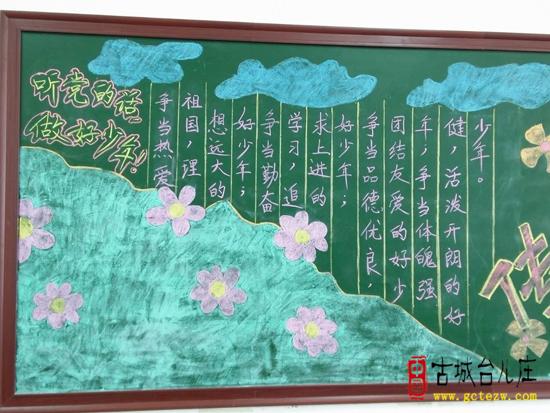 听党的话，
做好少年！
争当热爱
祖国，理
想远大的
好少年；
争当勤奋
学习，追
求上进的
好少年；
争当品德优良，
团结友爱的好少
年；争当体魄强
健，活泼开朗的好
少年。
中国
古城台儿庄
www.gctezw.com